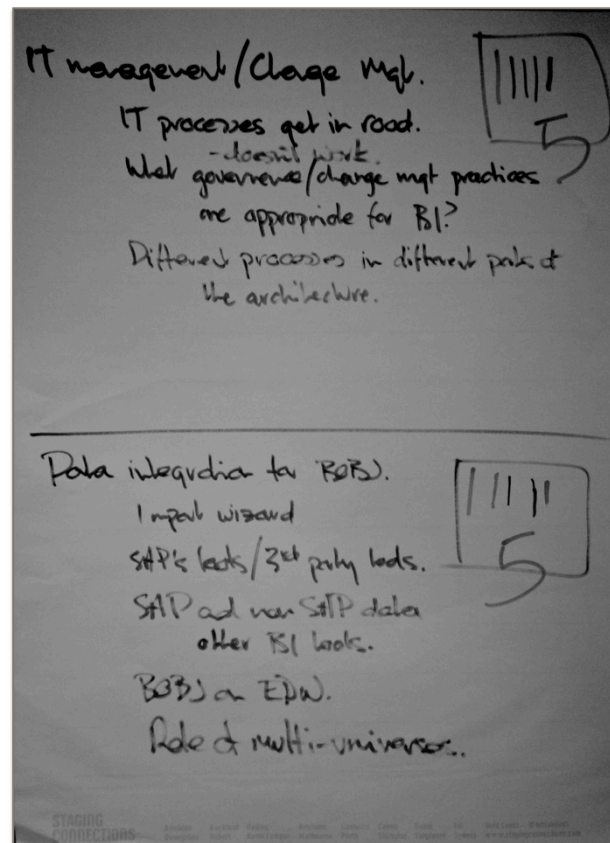 IT management/Change Mgt.
5
IT processes get in road.
- doesn't work.
What governance/change mgt practices
are appropriate for BI?
Different processes in different parts of
the architecture.
Data integration for BOBJ.
5
Import wizard
SAP's tools/3rd party tools.
SAP and non SAP data
other BI tools.
BOBJ on EDW.
Role of multi-universes..
STAGING
CONNECTIONS